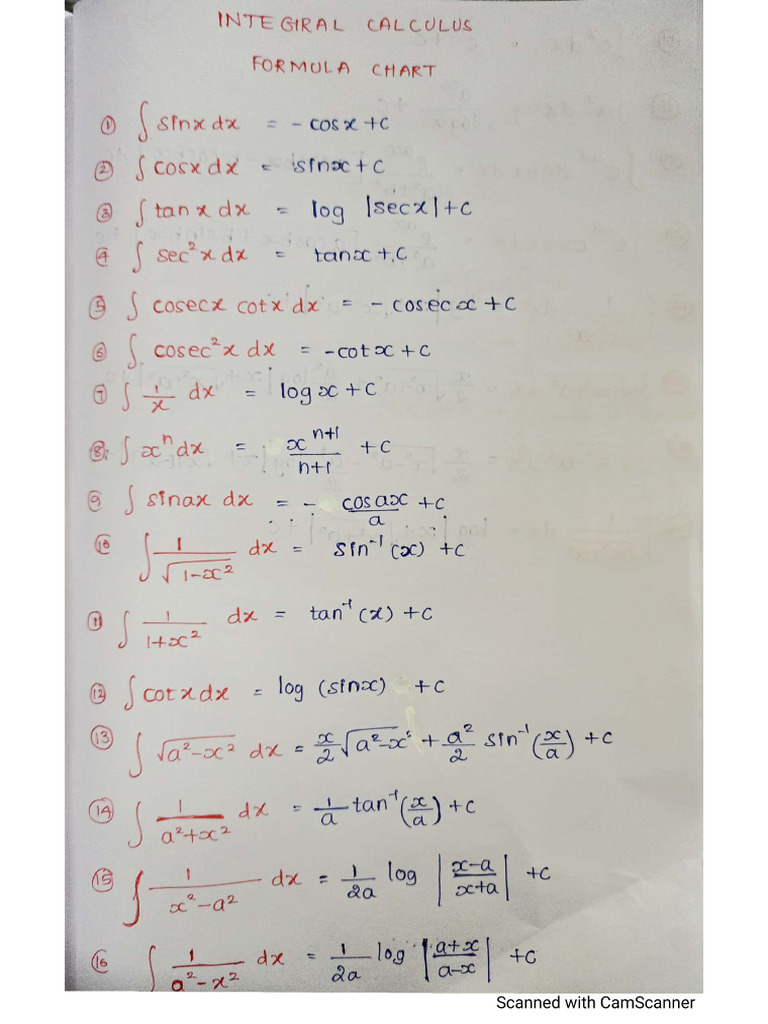 INTEGRAL CALCULUS
FORMULA CHART
① ∫ sinx dx = - cosx + c
② ∫ cosx dx = sinx + c
③ ∫ tan x dx = log |secx| + c
④ ∫ sec²x dx = tanx + c
⑤ ∫ cosecx cotx dx = - cosecx + c
⑥ ∫ cosec²x dx = -cotx + c
⑦ ∫ 1/x dx = logx + c
⑧ ∫ xⁿ dx = xⁿ⁺¹/n+1 + c
⑨ ∫ sinax dx = - cosax/a + c
⑩ ∫ 1/√(1-x²) dx = sin⁻¹(x) + c
⑪ ∫ 1/1+x² dx = tan⁻¹(x) + c
⑫ ∫ cotx dx = log (sinx) + c
⑬ ∫ √(a²-x²) dx = x/2 √(a²-x²) + a²/2 sin⁻¹(x/a) + c
⑭ ∫ 1/a²+x² dx = 1/a tan⁻¹(x/a) + c
⑮ ∫ 1/x²-a² dx = 1/2a log |x-a/x+a| + c
⑯ ∫ 1/a²-x² dx = 1/2a log |a+x/a-x| + c
Scanned with CamScanner